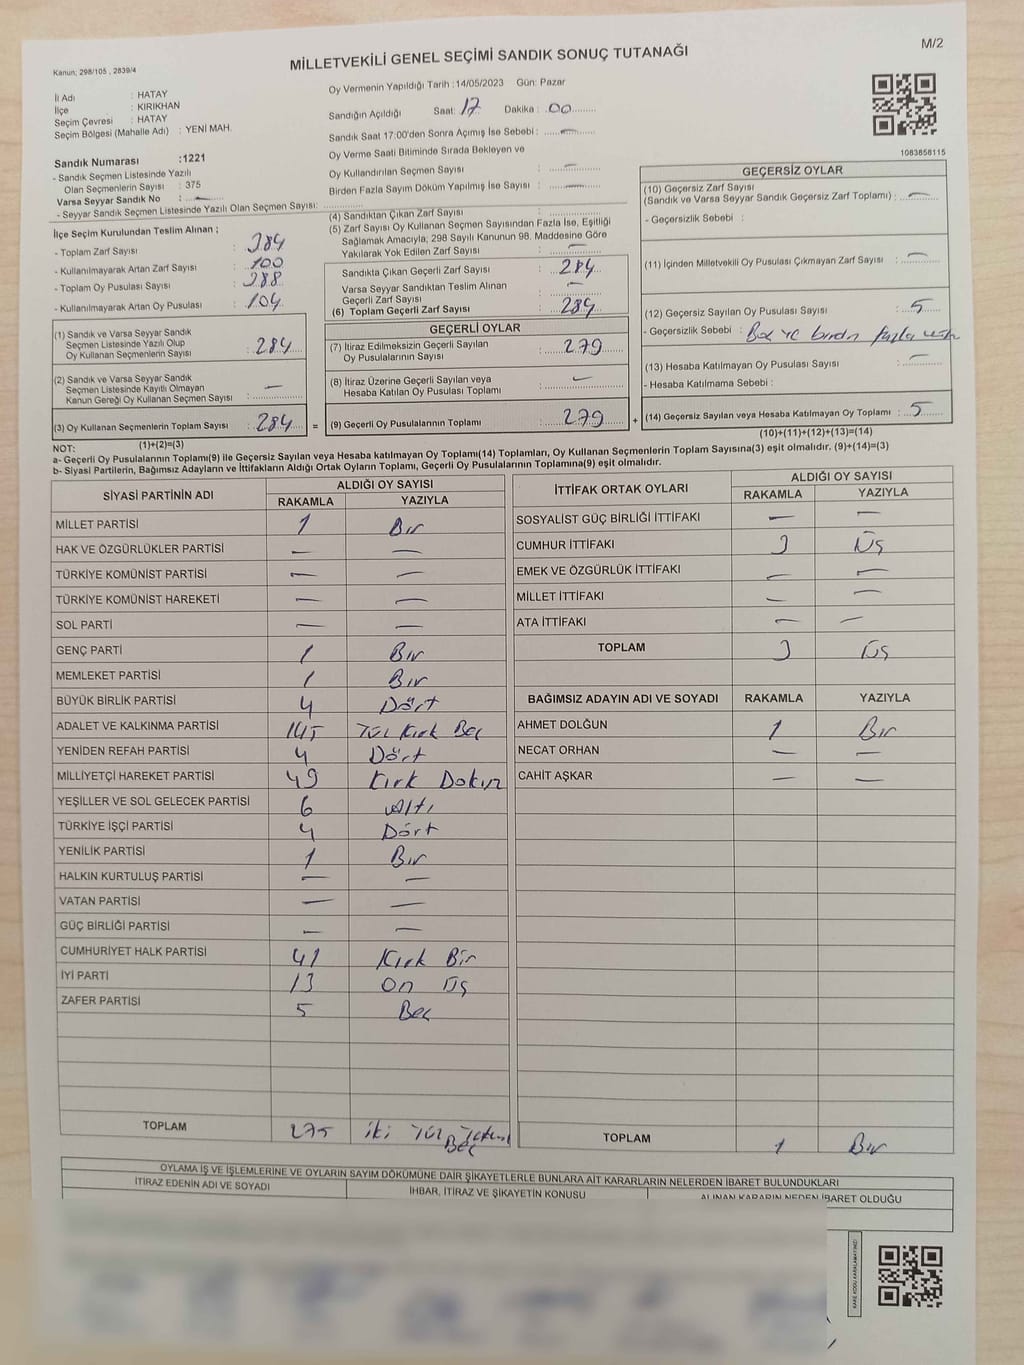 M/2
MİLLETVEKİLİ GENEL SEÇİMİ SANDIK SONUÇ TUTANAĞI
Kanun; 298/105 , 2839/4
İl Adı : HATAY
İlçe : KIRIKHAN
Seçim Çevresi : HATAY
Seçim Bölgesi (Mahalle Adı) : YENİ MAH.
Sandık Numarası :1221
- Sandık Seçmen Listesinde Yazılı
Olan Seçmenlerin Sayısı : 375
Varsa Seyyar Sandık No : —
- Seyyar Sandık Seçmen Listesinde Yazılı Olan Seçmen Sayısı:
Oy Vermenin Yapıldığı Tarih :14/05/2023 Gün: Pazar
Sandığın Açıldığı Saat: 17 Dakika : 00
Sandık Saat 17:00'den Sonra Açımış İse Sebebi : —
Oy Verme Saati Bitiminde Sırada Bekleyen ve
Oy Kullandırılan Seçmen Sayısı : —
Birden Fazla Sayım Döküm Yapılmış İse Sayısı : —
1083658115
İlçe Seçim Kurulundan Teslim Alınan ;
- Toplam Zarf Sayısı : 384
- Kullanılmayarak Artan Zarf Sayısı : 100
- Toplam Oy Pusulası Sayısı : 388
- Kullanılmayarak Artan Oy Pusulası : 104
(1) Sandık ve Varsa Seyyar Sandık
Seçmen Listesinde Yazılı Olup
Oy Kullanan Seçmenlerin Sayısı : 284
(2) Sandık ve Varsa Seyyar Sandık
Seçmen Listesinde Kayıtlı Olmayan
Kanun Gereği Oy Kullanan Seçmen Sayısı : —
(3) Oy Kullanan Seçmenlerin Toplam Sayısı : 284 =
(1)+(2)=(3)
(4) Sandıktan Çıkan Zarf Sayısı :
(5) Zarf Sayısı Oy Kullanan Seçmen Sayısından Fazla İse, Eşitliği
Sağlamak Amacıyla; 298 Sayılı Kanunun 98. Maddesine Göre
Yakılarak Yok Edilen Zarf Sayısı : —
Sandıkta Çıkan Geçerli Zarf Sayısı : 284
Varsa Seyyar Sandıktan Teslim Alınan
Geçerli Zarf Sayısı : —
(6) Toplam Geçerli Zarf Sayısı : 284
GEÇERLİ OYLAR
(7) İtiraz Edilmeksizin Geçerli Sayılan
Oy Pusulalarının Sayısı : 279
(8) İtiraz Üzerine Geçerli Sayılan veya
Hesaba Katılan Oy Pusulası Toplamı : —
(9) Geçerli Oy Pusulalarının Toplamı : 279 +
GEÇERSİZ OYLAR
(10) Geçersiz Zarf Sayısı
(Sandık ve Varsa Seyyar Sandık Geçersiz Zarf Toplamı) : —
- Geçersizlik Sebebi :
(11) İçinden Milletvekili Oy Pusulası Çıkmayan Zarf Sayısı : —
(12) Geçersiz Sayılan Oy Pusulası Sayısı : 5
- Geçersizlik Sebebi : Boş ve birden fazla
(13) Hesaba Katılmayan Oy Pusulası Sayısı : —
- Hesaba Katılmama Sebebi :
(14) Geçersiz Sayılan veya Hesaba Katılmayan Oy Toplamı : 5
(10)+(11)+(12)+(13)=(14)
NOT:
a- Geçerli Oy Pusulalarının Toplamı(9) ile Geçersiz Sayılan veya Hesaba katılmayan Oy Toplamı(14) Toplamları, Oy Kullanan Seçmenlerin Toplam Sayısına(3) eşit olmalıdır. (9)+(14)=(3)
b- Siyasi Partilerin, Bağımsız Adayların ve İttifakların Aldığı Ortak Oyların Toplamı, Geçerli Oy Pusulalarının Toplamına(9) eşit olmalıdır.
SİYASİ PARTİNİN ADI ALDIĞI OY SAYISI
RAKAMLA YAZIYLA
MİLLET PARTİSİ 1 Bir
HAK VE ÖZGÜRLÜKLER PARTİSİ — —
TÜRKİYE KOMÜNİST PARTİSİ — —
TÜRKİYE KOMÜNİST HAREKETİ — —
SOL PARTİ — —
GENÇ PARTİ 1 Bir
MEMLEKET PARTİSİ 1 Bir
BÜYÜK BİRLİK PARTİSİ 4 Dört
ADALET VE KALKINMA PARTİSİ 145 Yüz Kırk Beş
YENİDEN REFAH PARTİSİ 4 Dört
MİLLİYETÇİ HAREKET PARTİSİ 49 Kırk Dokuz
YEŞİLLER VE SOL GELECEK PARTİSİ 6 Altı
TÜRKİYE İŞÇİ PARTİSİ 4 Dört
YENİLİK PARTİSİ 1 Bir
HALKIN KURTULUŞ PARTİSİ — —
VATAN PARTİSİ — —
GÜÇ BİRLİĞİ PARTİSİ — —
CUMHURİYET HALK PARTİSİ 41 Kırk Bir
İYİ PARTİ 13 On Üç
ZAFER PARTİSİ 5 Beş
TOPLAM 275 İki Yüz Yetmiş Beş
İTTİFAK ORTAK OYLARI ALDIĞI OY SAYISI
RAKAMLA YAZIYLA
SOSYALİST GÜÇ BİRLİĞİ İTTİFAKI — —
CUMHUR İTTİFAKI 3 Üç
EMEK VE ÖZGÜRLÜK İTTİFAKI — —
MİLLET İTTİFAKI — —
ATA İTTİFAKI — —
TOPLAM 3 Üç
BAĞIMSIZ ADAYIN ADI VE SOYADI RAKAMLA YAZIYLA
AHMET DOLĞUN 1 Bir
NECAT ORHAN — —
CAHİT AŞKAR — —
TOPLAM 1 Bir
OYLAMA İŞ VE İŞLEMLERİNE VE OYLARIN SAYIM DÖKÜMÜNE DAİR ŞİKAYETLERLE BUNLARA AİT KARARLARIN NELERDEN İBARET BULUNDUKLARI
İTİRAZ EDENİN ADI VE SOYADI İHBAR, İTİRAZ VE ŞİKAYETİN KONUSU ALINAN KARARIN NEDEN İBARET OLDUĞU